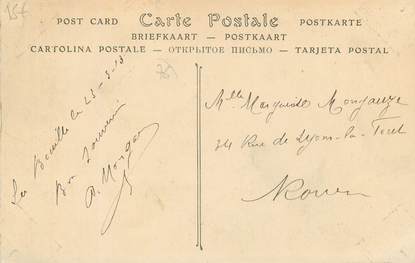 POST CARD Carte Postale POSTKARTE
BRIEFKAART — POSTKAART
CARTOLINA POSTALE — ОТКРЫТОЕ ПИСЬМО — TARJETA POSTAL
La Bouille le 23-3-13
Bon Souvenir
Mlle Marguerite
34 Rue de Lyons-la-Foret
Rouen